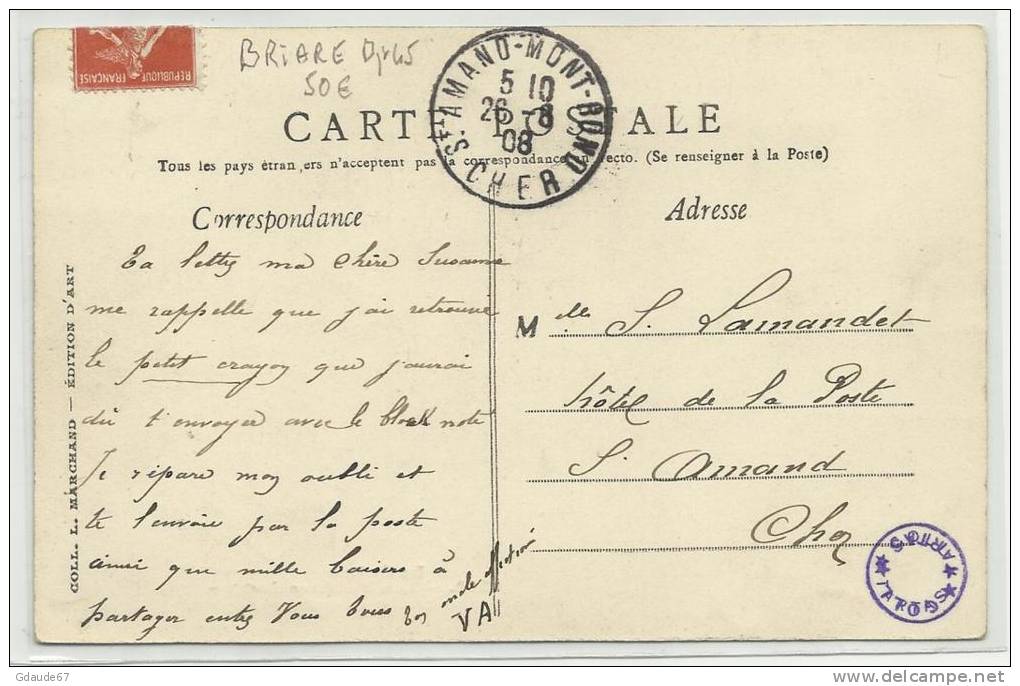 REPUBLIQUE FRANÇAISE
BRIARE Dpt 45
50 €
ST AMAND-MONT-ROND
5 10
26 -8
08
CHER
CARTE POSTALE
Tous les pays étrangers n'acceptent pas la correspondance au recto. (Se renseigner à la Poste)
Correspondance
Adresse
Ta lettre ma chère Susanne
me rappelle que j'ai retrouvé
le petit crayon que j'aurai
dû t'envoyer avec le block note
Je répare mon oubli et
te l'envoie par la poste
ainsi que mille baisers à
partager entre Vous tous
affection
COLL. L. MARCHAND — ÉDITION D'ART
Melle S. Lamandet
hôtel de la Poste
St Amand
Cher
Gdaude67
delcampe.net